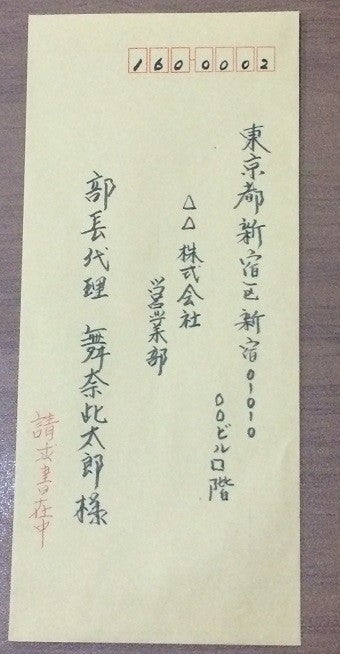 1600002
東京都新宿区新宿01010
〇〇ビル口階
△△株式会社
営業部
部長代理 舞奈比太郎様
請求書在中